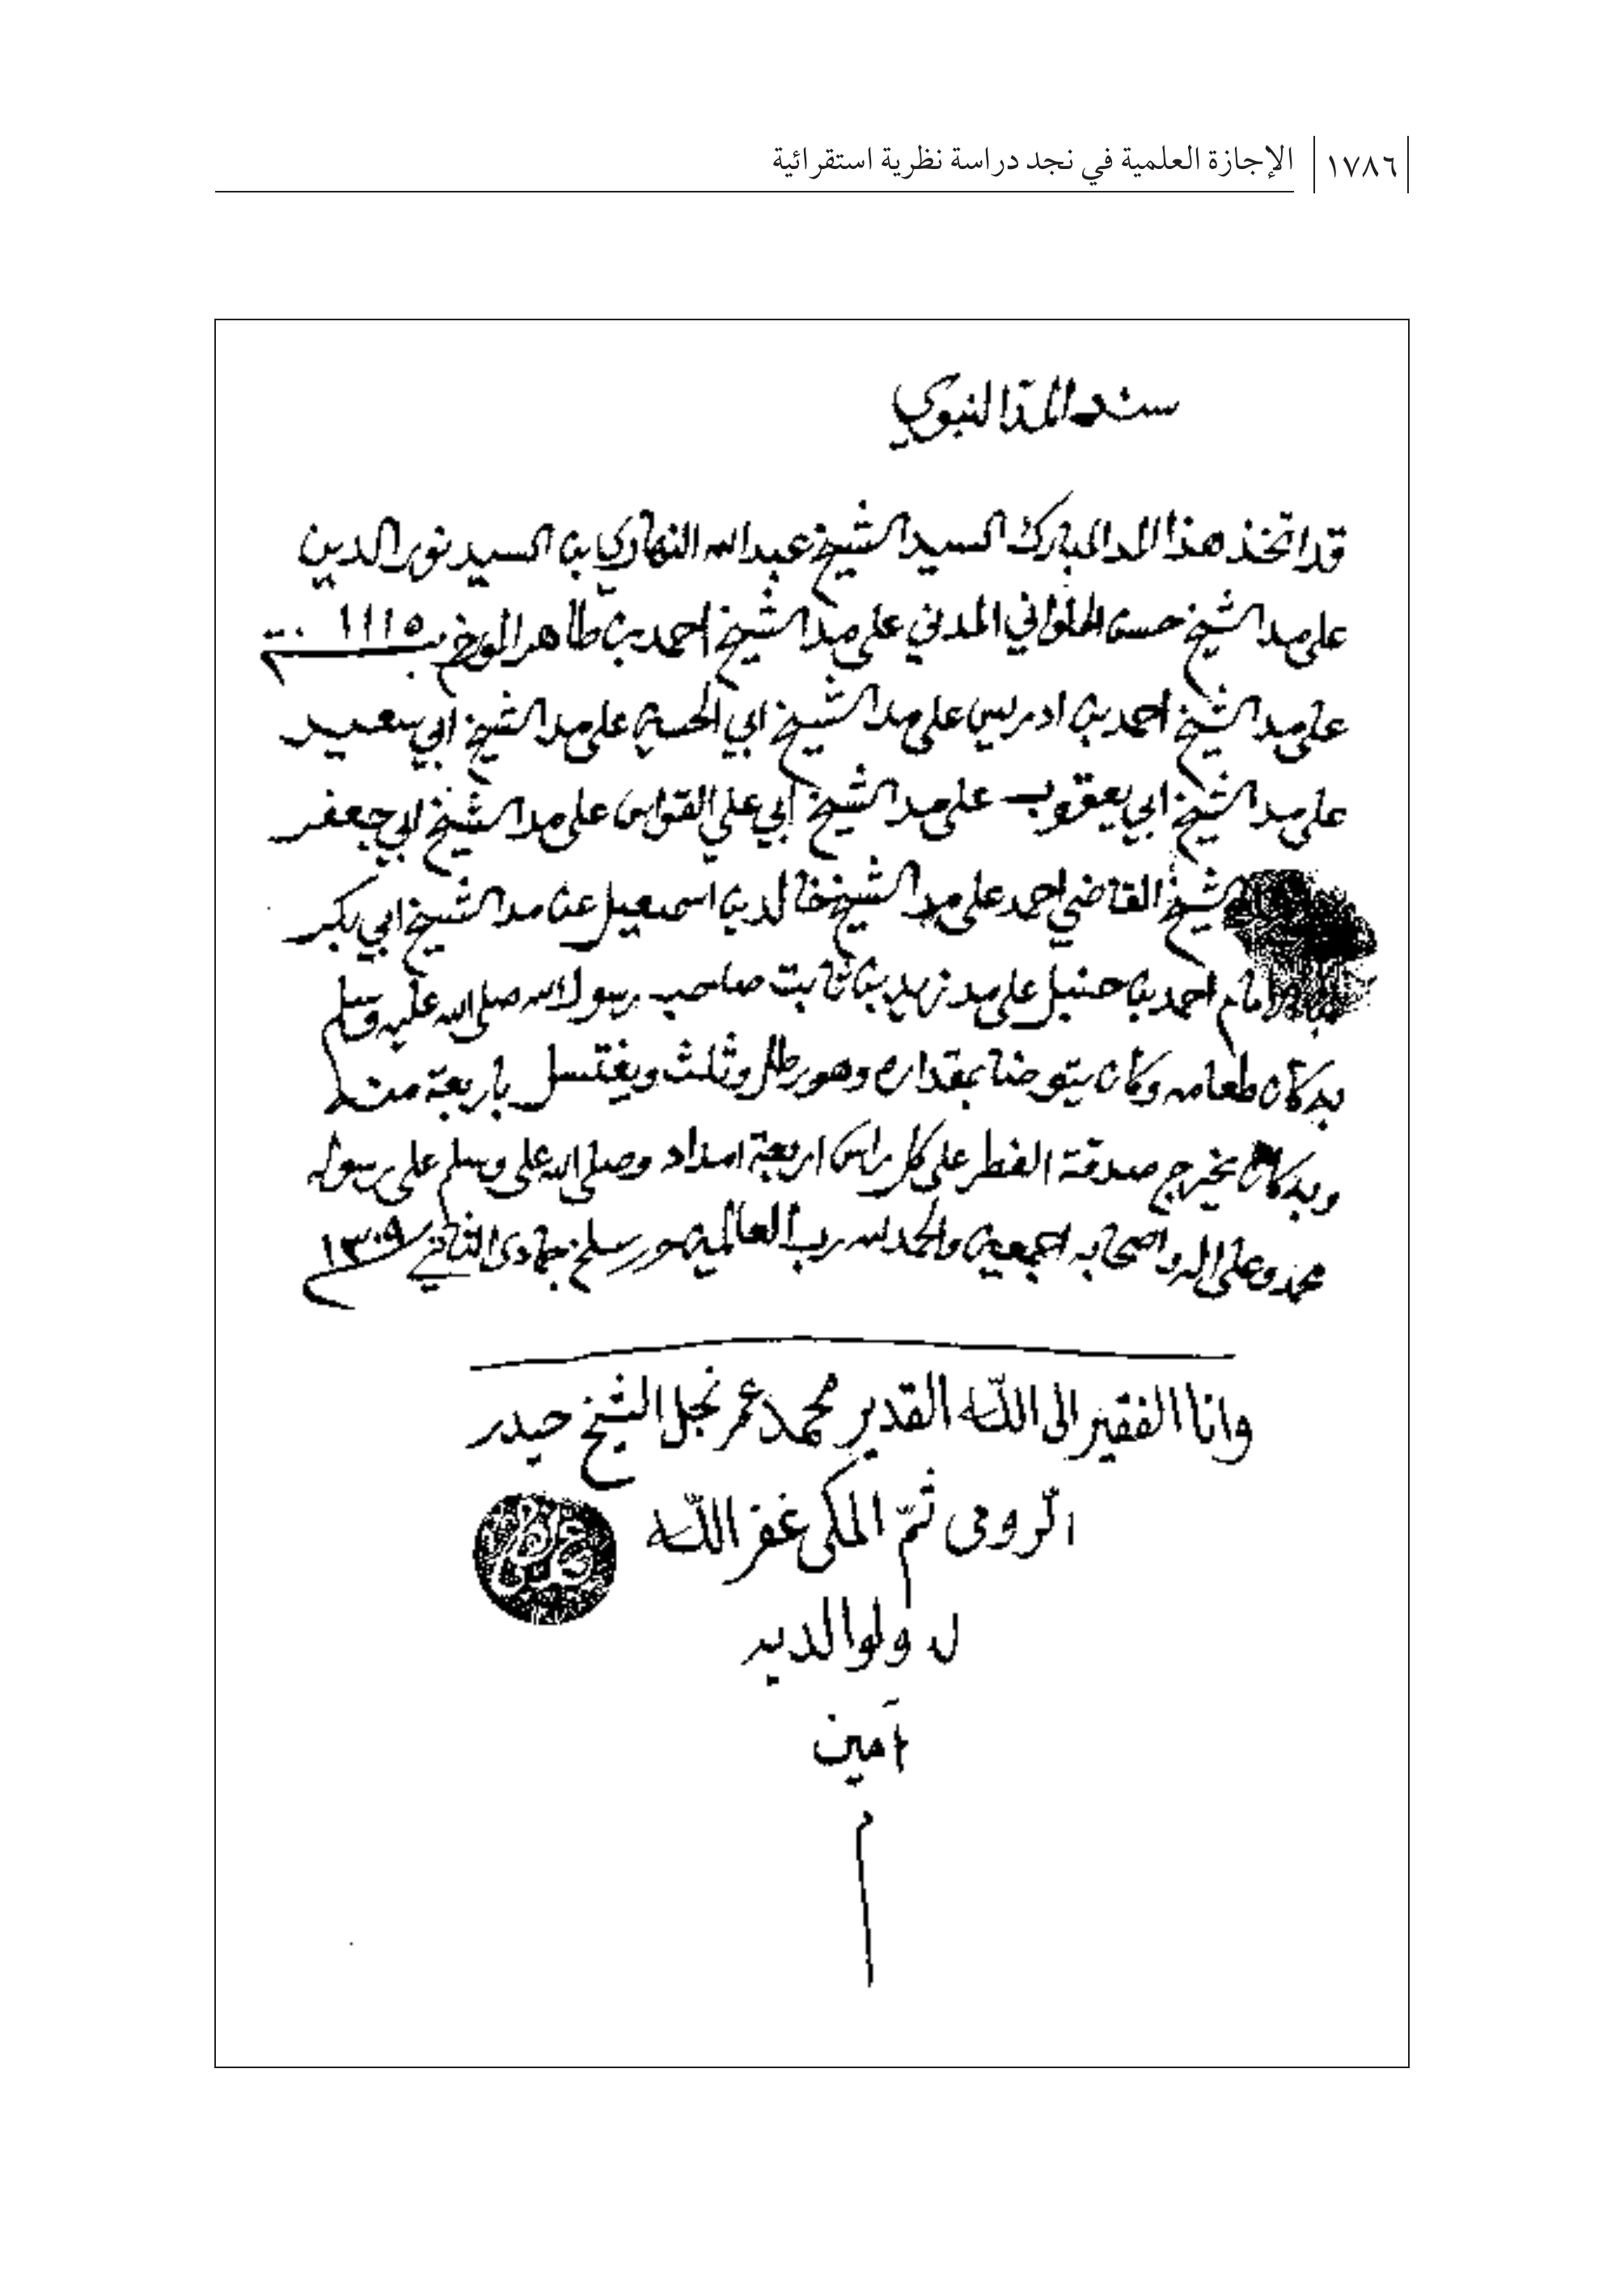 ١٧٨٦ الإجازة العلمية في نجد دراسة نظرية استقرائية
سند المد النبوي
قد اتخذ هذا المد المبارك السيد الشيخ عبد الله النهاري بن السيد نور الدين
على مد الشيخ حسن الحلواني المدني على مد الشيخ احمد بن طاهر المورخ ١١١٥
على مد الشيخ احمد بن ادريس على مد الشيخ ابي الحسين على مد الشيخ ابي سعيد
على مد الشيخ ابي يعقوب على مد الشيخ ابي علي القواس على مد الشيخ ابي جعفر
الشيخ القاضي احمد على مد الشيخ خالد بن اسمعيل عن مد الشيخ ابي بكر
امام احمد بن حنبل على مد زيد بن ثابت صاحب رسول الله صلى الله عليه وسلم
به كان طعامه وكان يتوضا بمقداره وهو رطل وثلث ويغتسل باربعة منه
وبه كان يخرج صدقة الفطر على كل راس اربعة امداد وصلى الله على وسلم على رسوله
محمد وعلى اله واصحابه اجمعين والحمد لله رب العالمين حرر سلخ جمادى الثاني ١٣٠٩
وانا الفقير الى الله القدير محمد عمر نجل الشيخ حيدر
الرومى ثم المكى غفر الله
له ولوالديه
آمين
م